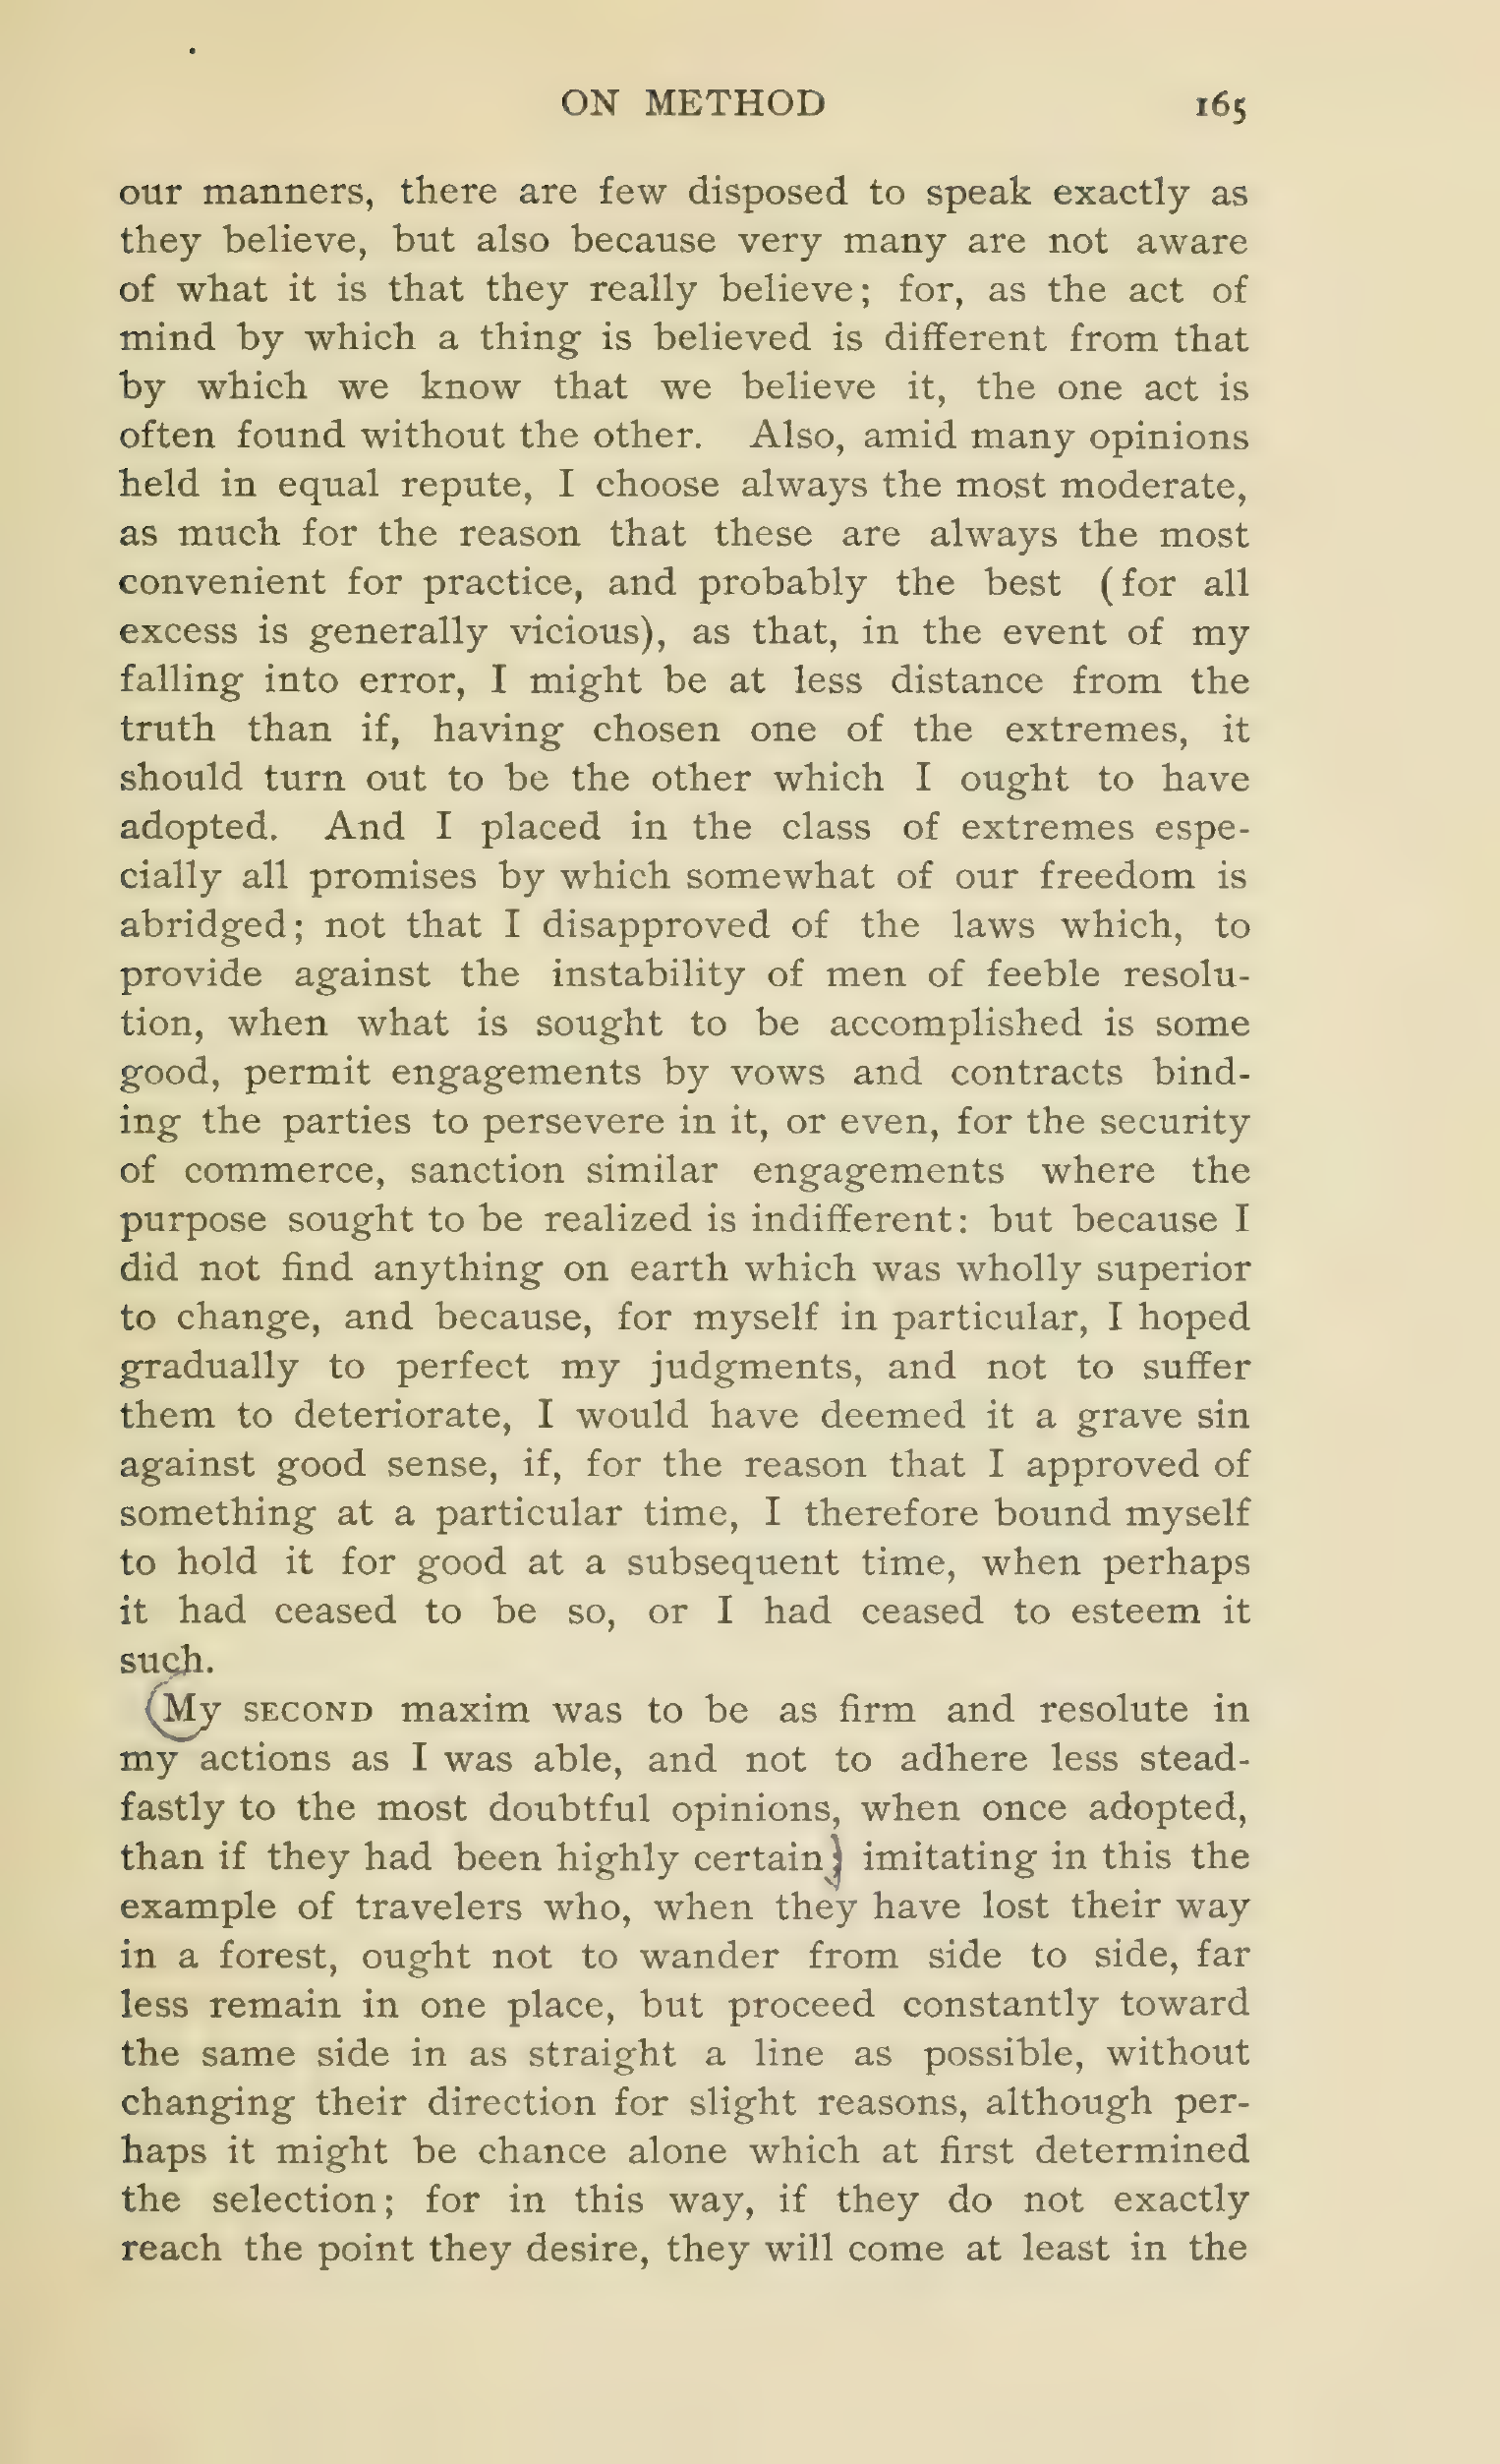 ON METHOD 165
our manners, there are few disposed to speak exactly as
they believe, but also because very many are not aware
of what it is that they really believe; for, as the act of
mind by which a thing is believed is different from that
by which we know that we believe it, the one act is
often found without the other. Also, amid many opinions
held in equal repute, I choose always the most moderate,
as much for the reason that these are always the most
convenient for practice, and probably the best (for all
excess is generally vicious), as that, in the event of my
falling into error, I might be at less distance from the
truth than if, having chosen one of the extremes, it
should turn out to be the other which I ought to have
adopted. And I placed in the class of extremes espe-
cially all promises by which somewhat of our freedom is
abridged; not that I disapproved of the laws which, to
provide against the instability of men of feeble resolu-
tion, when what is sought to be accomplished is some
good, permit engagements by vows and contracts bind-
ing the parties to persevere in it, or even, for the security
of commerce, sanction similar engagements where the
purpose sought to be realized is indifferent: but because I
did not find anything on earth which was wholly superior
to change, and because, for myself in particular, I hoped
gradually to perfect my judgments, and not to suffer
them to deteriorate, I would have deemed it a grave sin
against good sense, if, for the reason that I approved of
something at a particular time, I therefore bound myself
to hold it for good at a subsequent time, when perhaps
it had ceased to be so, or I had ceased to esteem it
such.
My SECOND maxim was to be as firm and resolute in
my actions as I was able, and not to adhere less stead-
fastly to the most doubtful opinions, when once adopted,
than if they had been highly certain; imitating in this the
example of travelers who, when they have lost their way
in a forest, ought not to wander from side to side, far
less remain in one place, but proceed constantly toward
the same side in as straight a line as possible, without
changing their direction for slight reasons, although per-
haps it might be chance alone which at first determined
the selection; for in this way, if they do not exactly
reach the point they desire, they will come at least in the